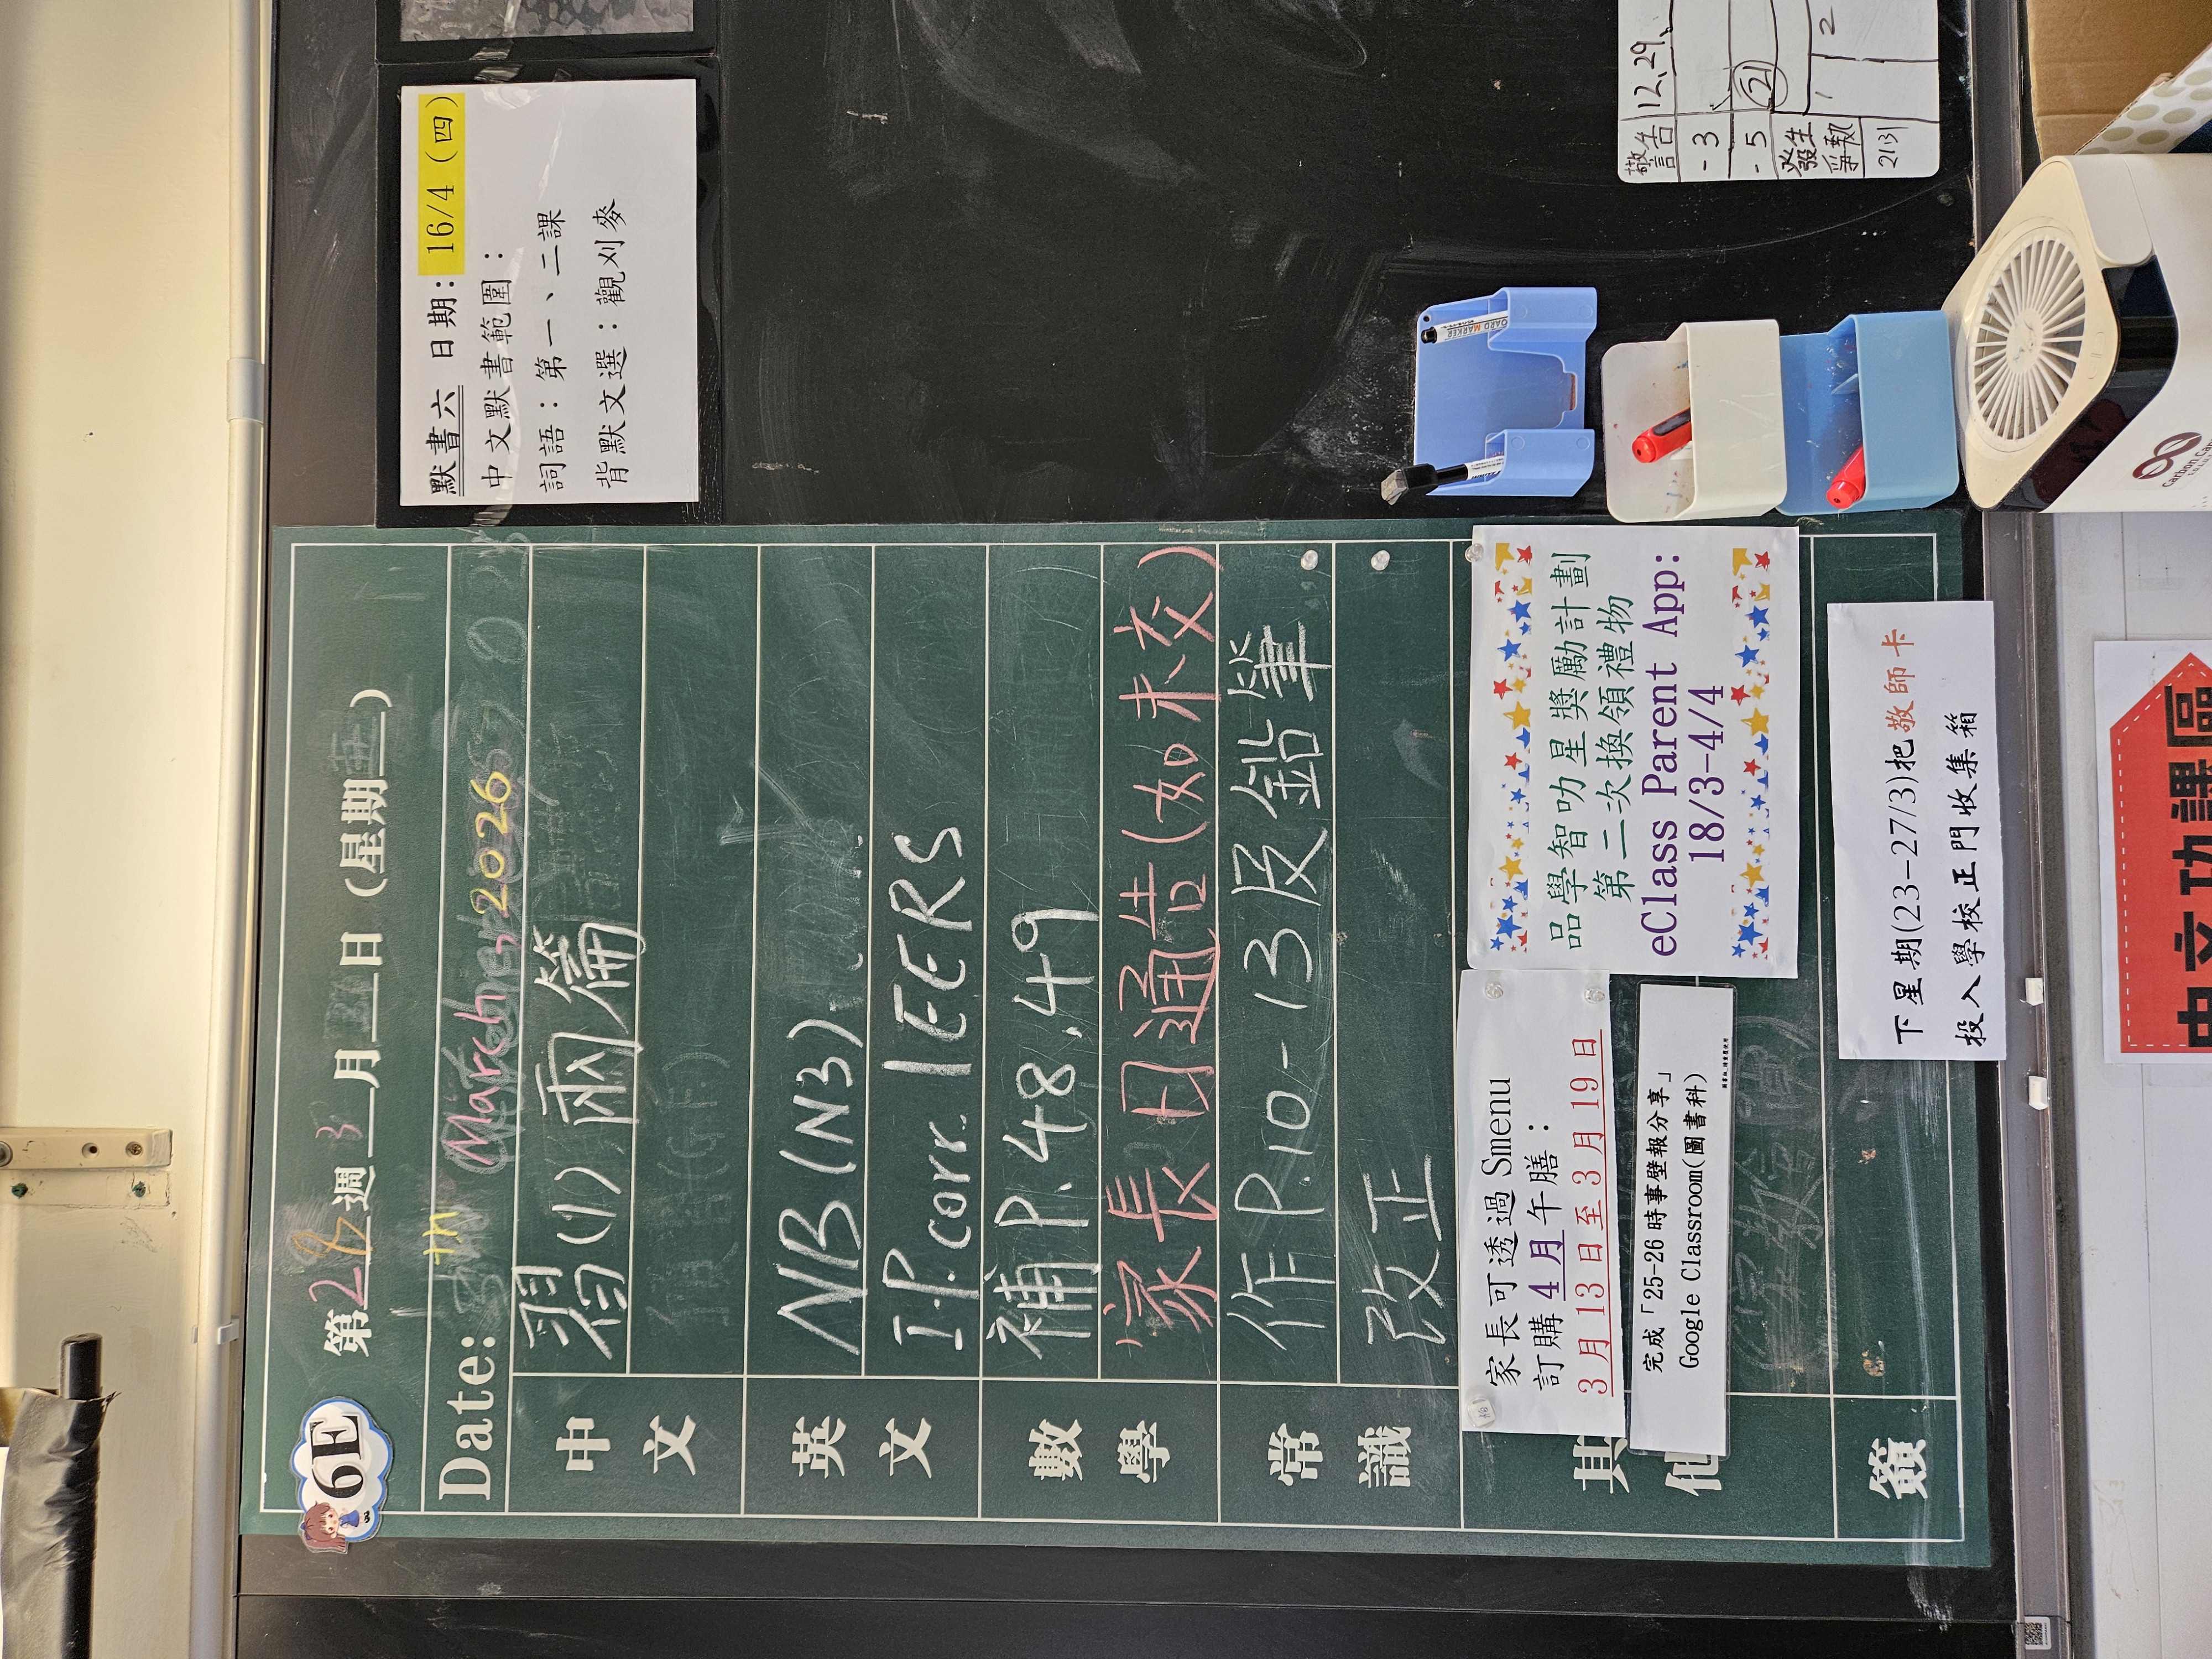 6E
第 週 3 月 日 (星期 )
Date: th March, 2026
中文
習(1)兩篇
英文
NB (N3)
I.P. corr. IEERS
數學
補 P.48, 49
家長日通告(如未交)
常識
作 P.10-13 及鉛筆
改正
其他
家長可透過 Smenu
訂購 4月 午膳：
3 月 13 日至 3 月 19 日
完成「25-26 時事壁報分享」
Google Classroom(圖書科)
品學智叻星獎勵計劃
第二次換領禮物
eClass Parent App:
18/3-4/4
簽
下星期(23-27/3)把敬師卡
投入學校正門收集箱
默書六 日期: 16/4 (四)
中文默書範圍：
詞語：第一、二課
背默文選：觀刈麥
警告 12,29,
-3
-5 21
發生爭執
2131 1 2
BOARD MARKER
中文功課區